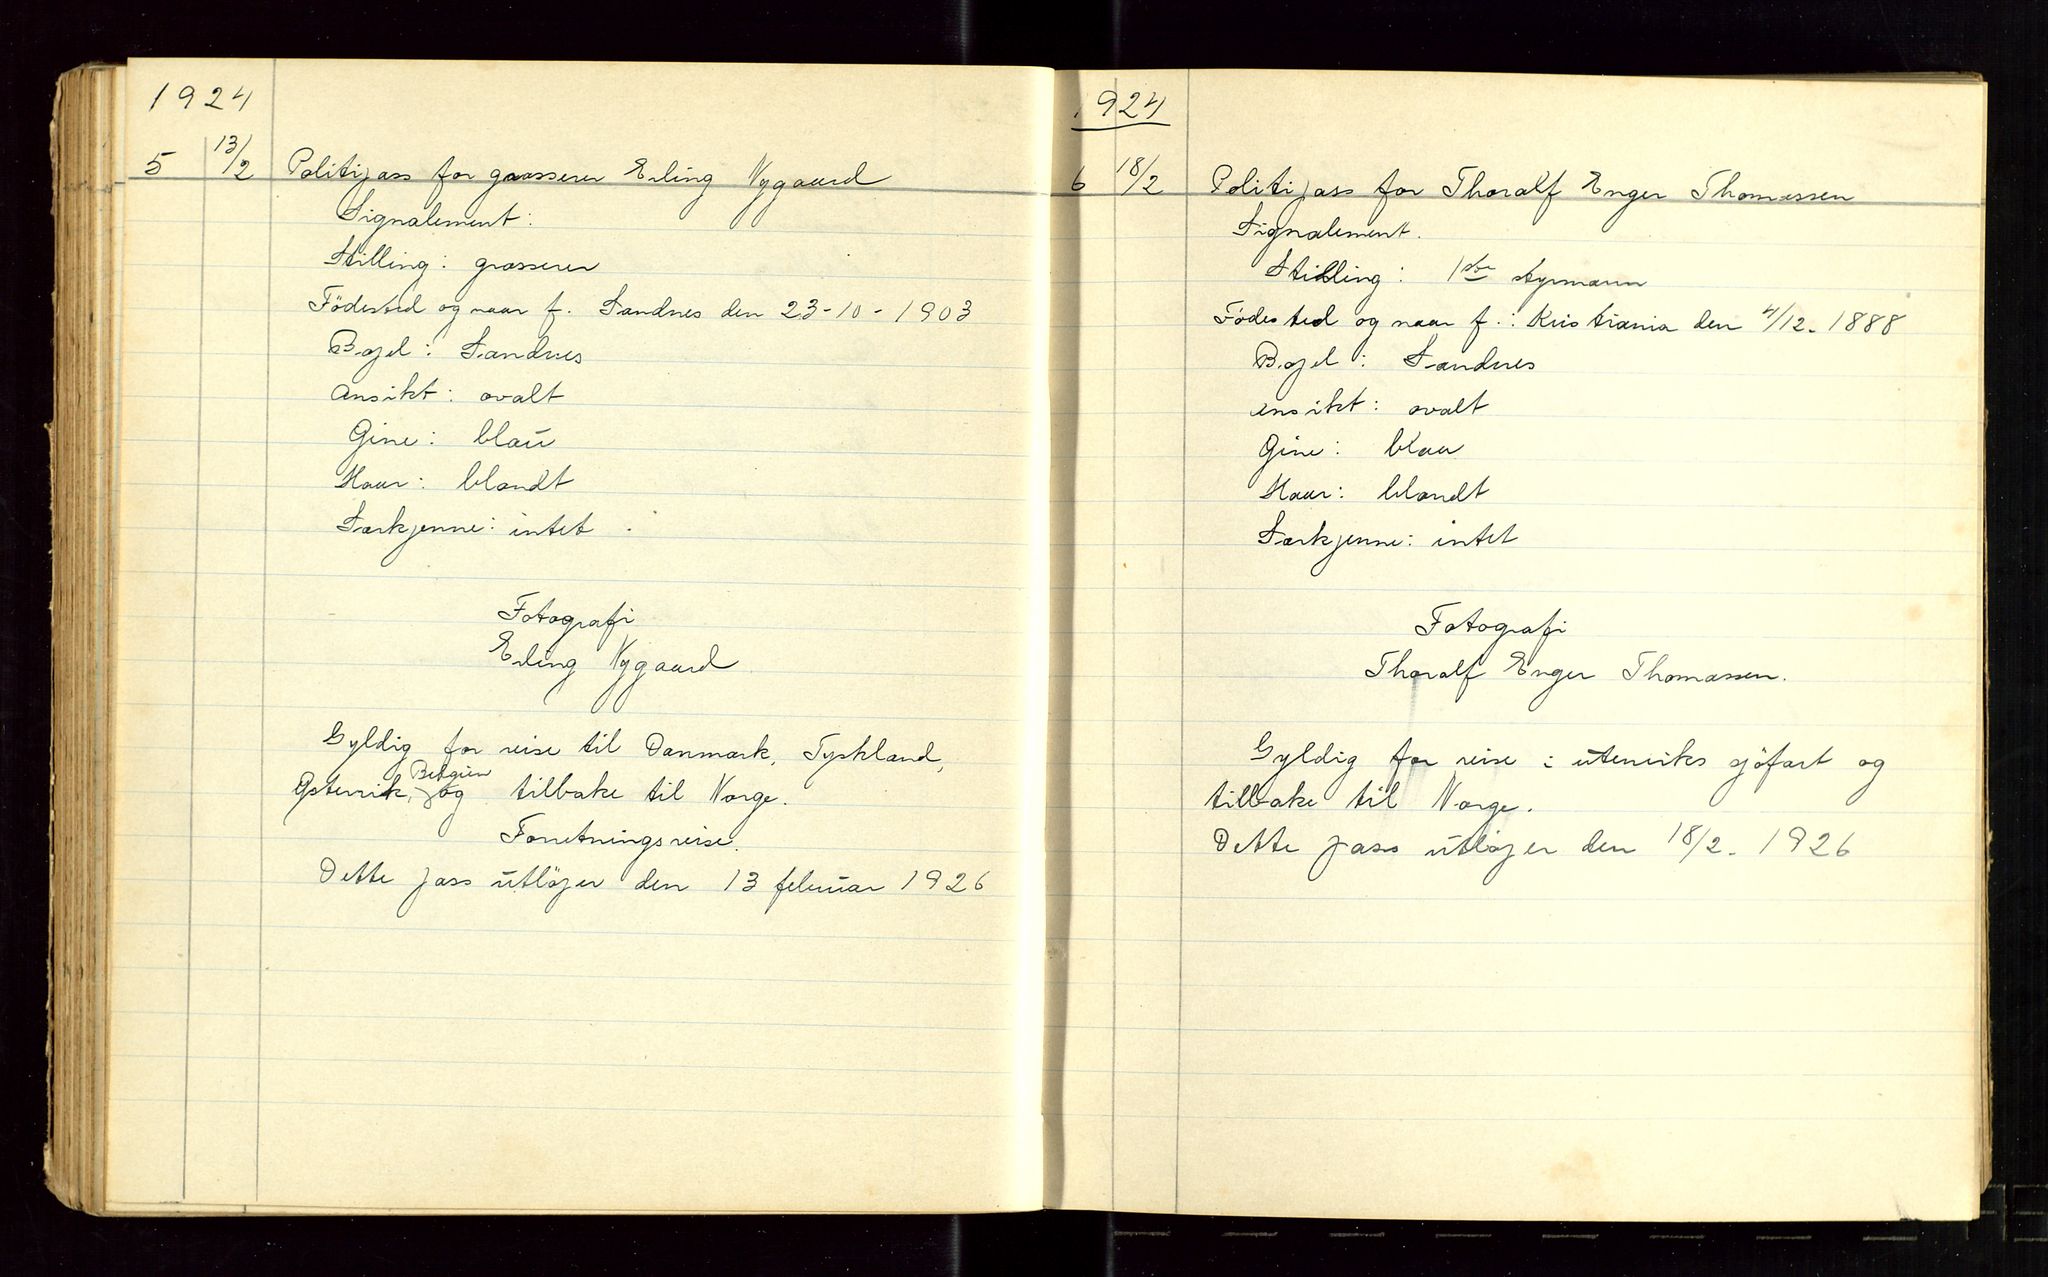 1924
5 13/2 Politipass for grosserer Erling Nygaard
Signalement:
Stilling: grosserer
Födested og naar f. Sandnes den 23-10-1903
Bopel: Sandnes
Ansikt: ovalt
Øine: blaū
Haar: blondt
Særkjenne: intet.
Fotografi
Erling Nygaard
Gyldig for reise til Danmark, Tyskland,
Belgien
Østerrik, og tilbake til Norge.
Forretningsreise.
Dette pass ūtlöper den 13 februar 1926
1924
6 18/2 Politipass for Thoralf Enger Thomassen
Signalement.
Stilling: 1ste styrmann
Födested og naar f.: Kristiania den 4/12-1888
Bopel: Sandnes
Ansikt: ovalt
Øine: blaa
Haar: blondt
Særkjenne: intet
Fotografi
Thoralf Enger Thomassen.
Gyldig for reise i utenriks sjöfart og
tilbake til Norge.
Dette pass ūtlöper den 18/2-1926